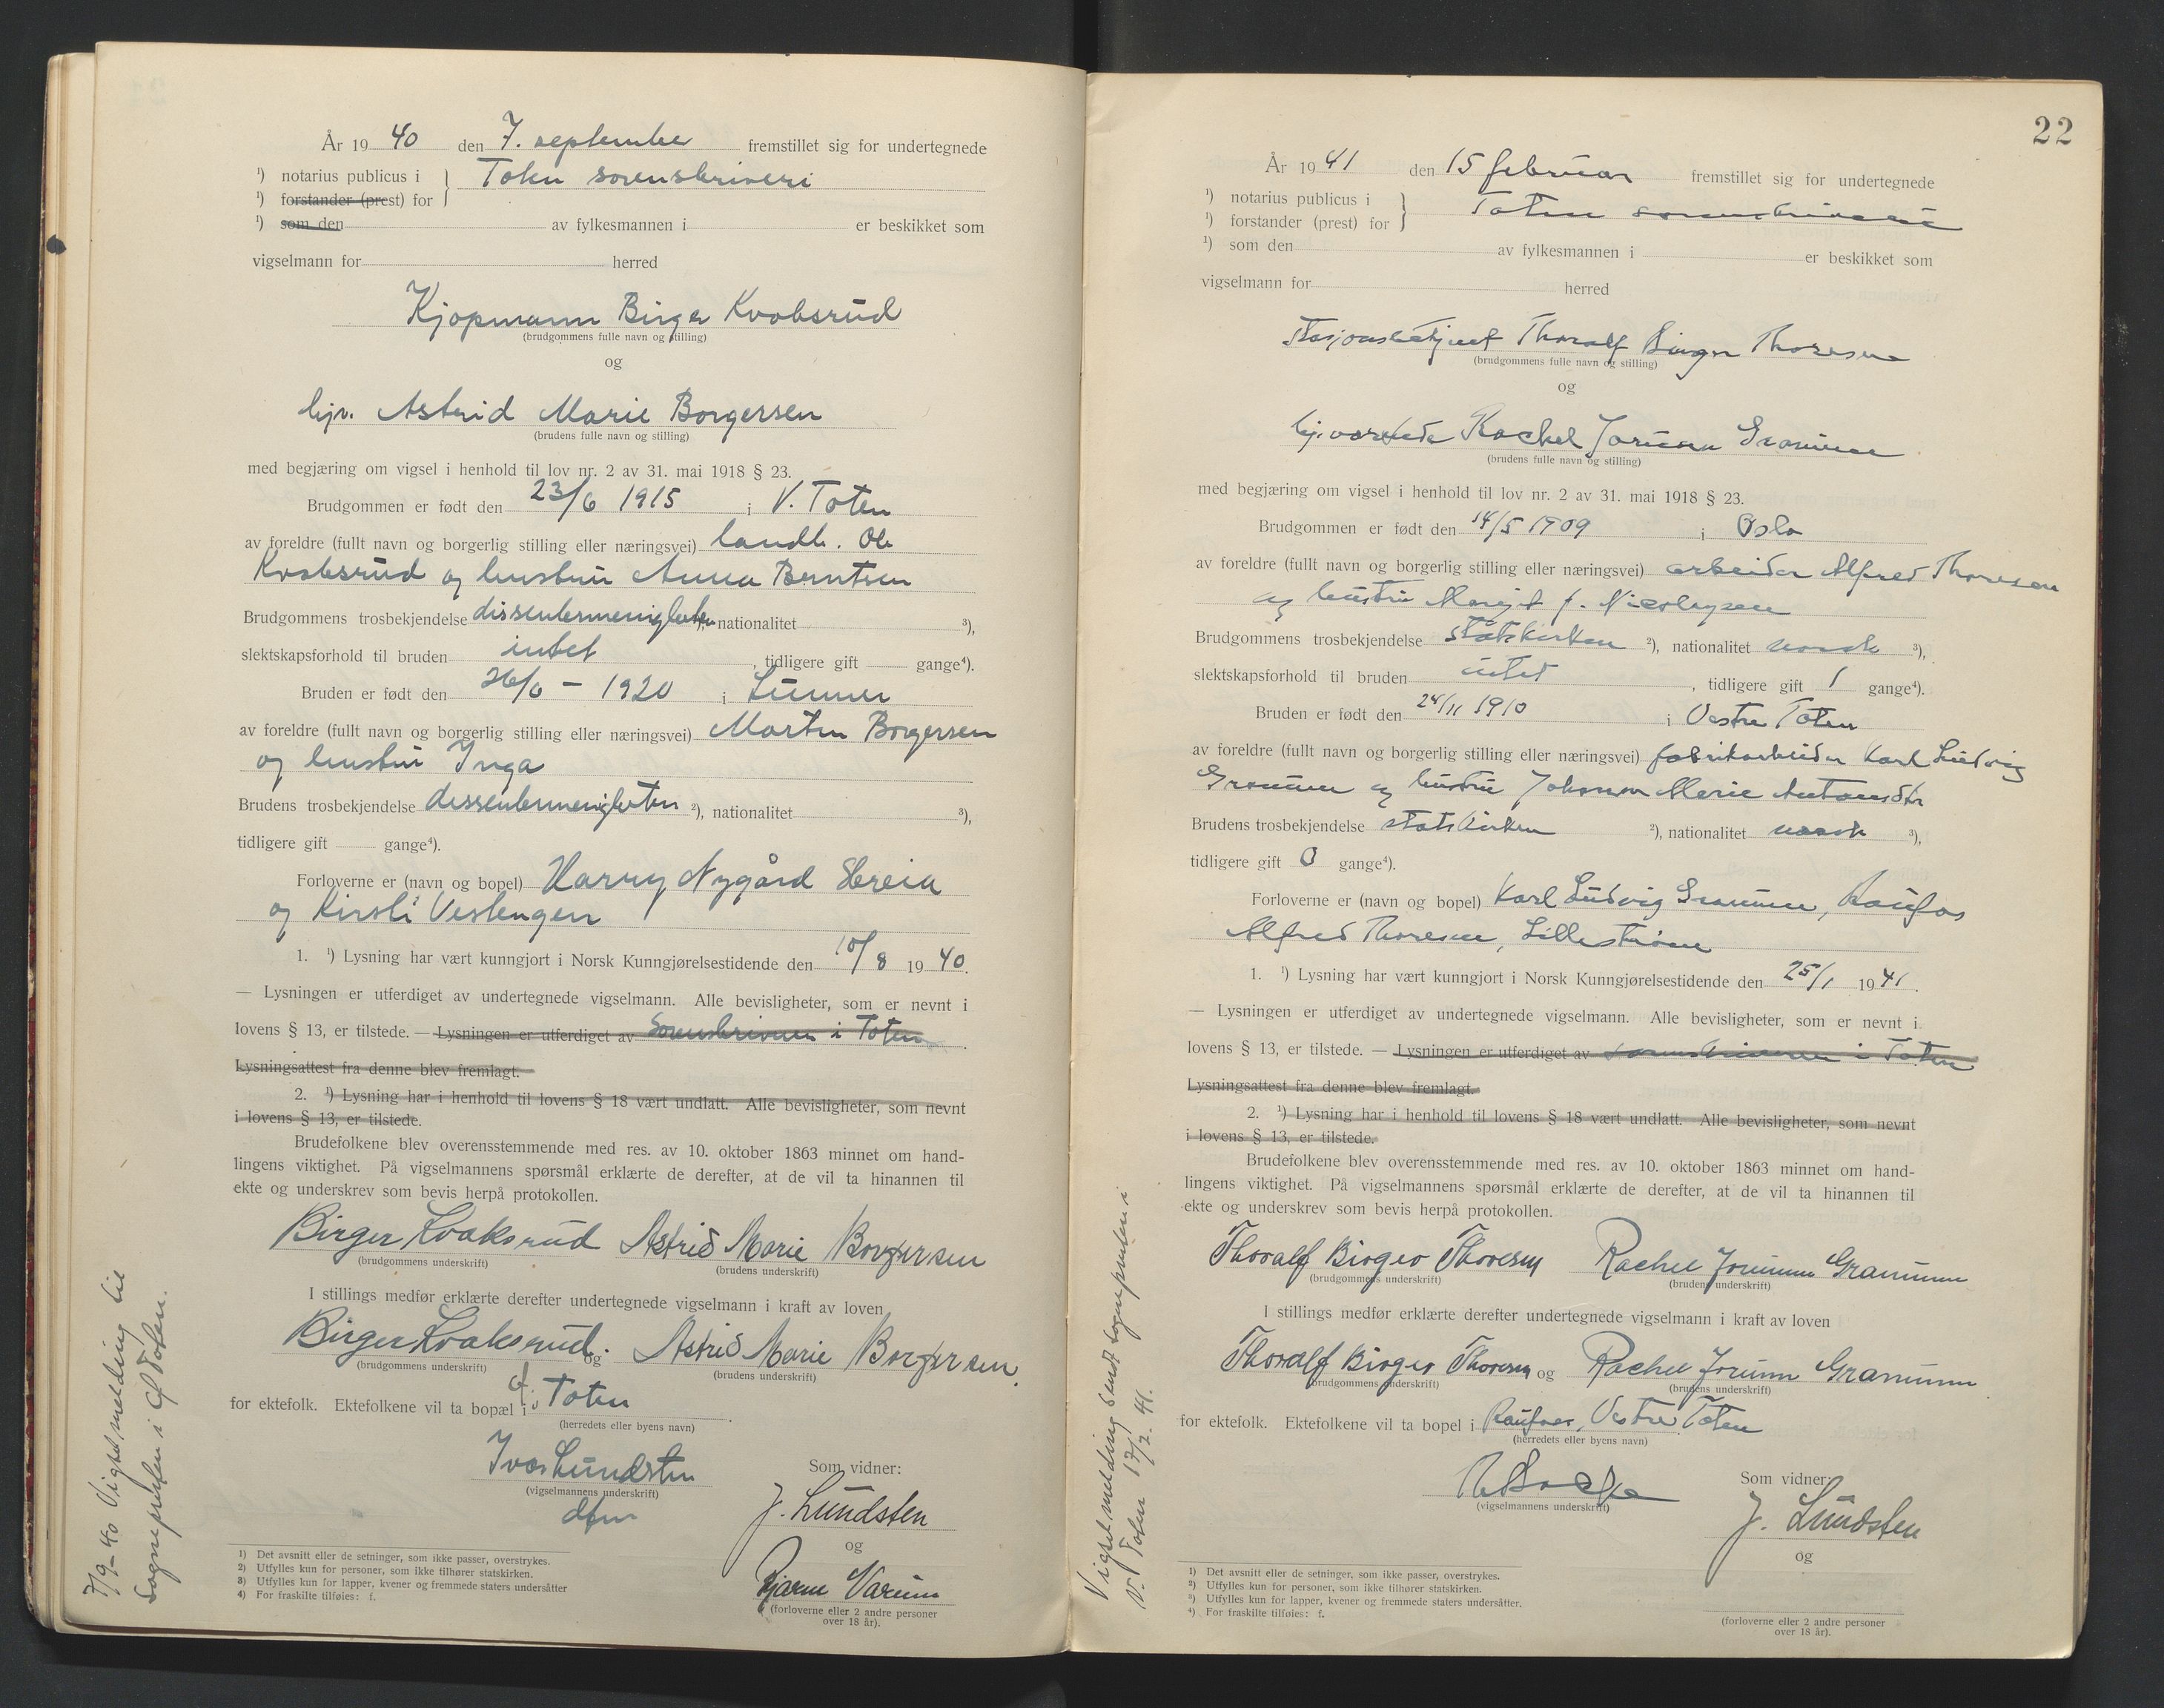 År 19 40 den 7. september fremstillet sig for undertegnede
¹) notarius publicus i } Toten sorenskriveri
¹) forstander (prest) for
¹) som den av fylkesmannen i er beskikket som
vigselmann for herred
Kjøpmann Birger Kvaksrud
(brudgommens fulle navn og stilling)
og
hjv. Astrid Marie Borgersen
(brudens fulle navn og stilling)
med begjæring om vigsel i henhold til lov nr. 2 av 31. mai 1918 § 23.
Brudgommen er født den 23/6 1915 i V. Toten
av foreldre (fullt navn og borgerlig stilling eller næringsvei) landb. Ole
Kvaksrud og hustru Anna Berntsen
Brudgommens trosbekjendelse dissentermenigheten ²), nationalitet ³),
slektskapsforhold til bruden intet , tidligere gift gange⁴).
Bruden er født den 26/6 – 1920 i Lunner
av foreldre (fullt navn og borgerlig stilling eller næringsvei) Martin Borgersen
og hustru Inga
Brudens trosbekjendelse dissentermenigheten ²), nationalitet ³),
tidligere gift gange⁴).
Forloverne er (navn og bopel) Harry Nygård Skreia
og Kirsti Vestengen
1. ¹) Lysning har vært kunngjort i Norsk Kunngjørelsestidende den 10/8 19 40.
— Lysningen er utferdiget av undertegnede vigselmann. Alle bevisligheter, som er nevnt i
lovens § 13, er tilstede. — Lysningen er utferdiget av Sorenskriveren i Toten.
Lysningsattest fra denne blev fremlagt.
2. ¹) Lysning har i henhold til lovens § 18 vært undlatt. Alle bevisligheter, som nevnt
i lovens § 13, er tilstede.
Brudefolkene blev overensstemmende med res. av 10. oktober 1863 minnet om hand-
lingens viktighet. På vigselmannens spørsmål erklærte de derefter, at de vil ta hinannen til
ekte og underskrev som bevis herpå protokollen.
Birger Kvaksrud Astrid Marie Borgersen
(brudgommens underskrift) (brudens underskrift)
I stillings medfør erklærte derefter undertegnede vigselmann i kraft av loven
Birger Kvaksrud. og Astrid Marie Borgersen.
(brudgommens underskrift) (brudens underskrift)
for ektefolk. Ektefolkene vil ta bopæl i Ø. Toten
(herredets eller byens navn)
Ivar Lundsten
(vigselmannens underskrift)
dfm
Som vidner:
J. Lundsten
og
Bjarne Varum
(forloverne eller 2 andre personer
over 18 år).
1) Det avsnitt eller de setninger, som ikke passer, overstrykes.
2) Utfylles kun for personer, som ikke tilhører statskirken.
3) Utfylles kun for lapper, kvener og fremmede staters undersåtter
4) For fraskilte tilføies: f.
7/9-40 Vigselmelding til
Sogneprsten i Ø Toten.
22
År 19 41 den 15 februar fremstillet sig for undertegnede
¹) notarius publicus i } Toten sorenskriveri
¹) forstander (prest) for
¹) som den av fylkesmannen i er beskikket som
vigselmann for herred
Stasjonsbetjent Thoralf Birger Thoresen
(brudgommens fulle navn og stilling)
og
hj.værende Rachel Jorunn Granum
(brudens fulle navn og stilling)
med begjæring om vigsel i henhold til lov nr. 2 av 31. mai 1918 § 23.
Brudgommen er født den 14/5 1909 i Oslo
av foreldre (fullt navn og borgerlig stilling eller næringsvei) arbeider Alfred Thoresen
og hustru Margit f. Nicolaysen
Brudgommens trosbekjendelse statskirken ²), nationalitet norsk ³),
slektskapsforhold til bruden intet , tidligere gift 1 gange⁴).
Bruden er født den 24/11 1910 i Vestre Toten
av foreldre (fullt navn og borgerlig stilling eller næringsvei) fabrikarbeider Karl Ludvig
Granum og hustru Johanna Marie Antonsdtr
Brudens trosbekjendelse statskirken ²), nationalitet norsk ³),
tidligere gift 0 gange⁴).
Forloverne er (navn og bopel) Karl Ludvig Granum, Raufos
Alfred Thoresen, Lillestrøm
1. ¹) Lysning har vært kunngjort i Norsk Kunngjørelsestidende den 25/1 19 41.
— Lysningen er utferdiget av undertegnede vigselmann. Alle bevisligheter, som er nevnt i
lovens § 13, er tilstede. — Lysningen er utferdiget av sorenskriveren i Toten
Lysningsattest fra denne blev fremlagt.
2. ¹) Lysning har i henhold til lovens § 18 vært undlatt. Alle bevisligheter, som nevnt
i lovens § 13, er tilstede.
Brudefolkene blev overensstemmende med res. av 10. oktober 1863 minnet om hand-
lingens viktighet. På vigselmannens spørsmål erklærte de derefter, at de vil ta hinannen til
ekte og underskrev som bevis herpå protokollen.
Thoralf Birger Thoresen Rachel Jorunn Granum
(brudgommens underskrift) (brudens underskrift)
I stillings medfør erklærte derefter undertegnede vigselmann i kraft av loven
Thoralf Birger Thoresen og Rachel Jorunn Granum
(brudgommens underskrift) (brudens underskrift)
for ektefolk. Ektefolkene vil ta bopel i Raufoss, Vestre Toten
(herredets eller byens navn)
(vigselmannens underskrift)
Som vidner:
J. Lundsten
og
(forloverne eller 2 andre personer
over 18 år).
1) Det avsnitt eller de setninger, som ikke passer, overstrykes.
²) Utfylles kun for personer, som ikke tilhører statskirken.
³) Utfylles kun for lapper, kvener og fremmede staters undersåtter.
⁴) For fraskilte tilføies: f.
Vigselmelding sendt sogneprsten i
V. Toten 17/2. 41.